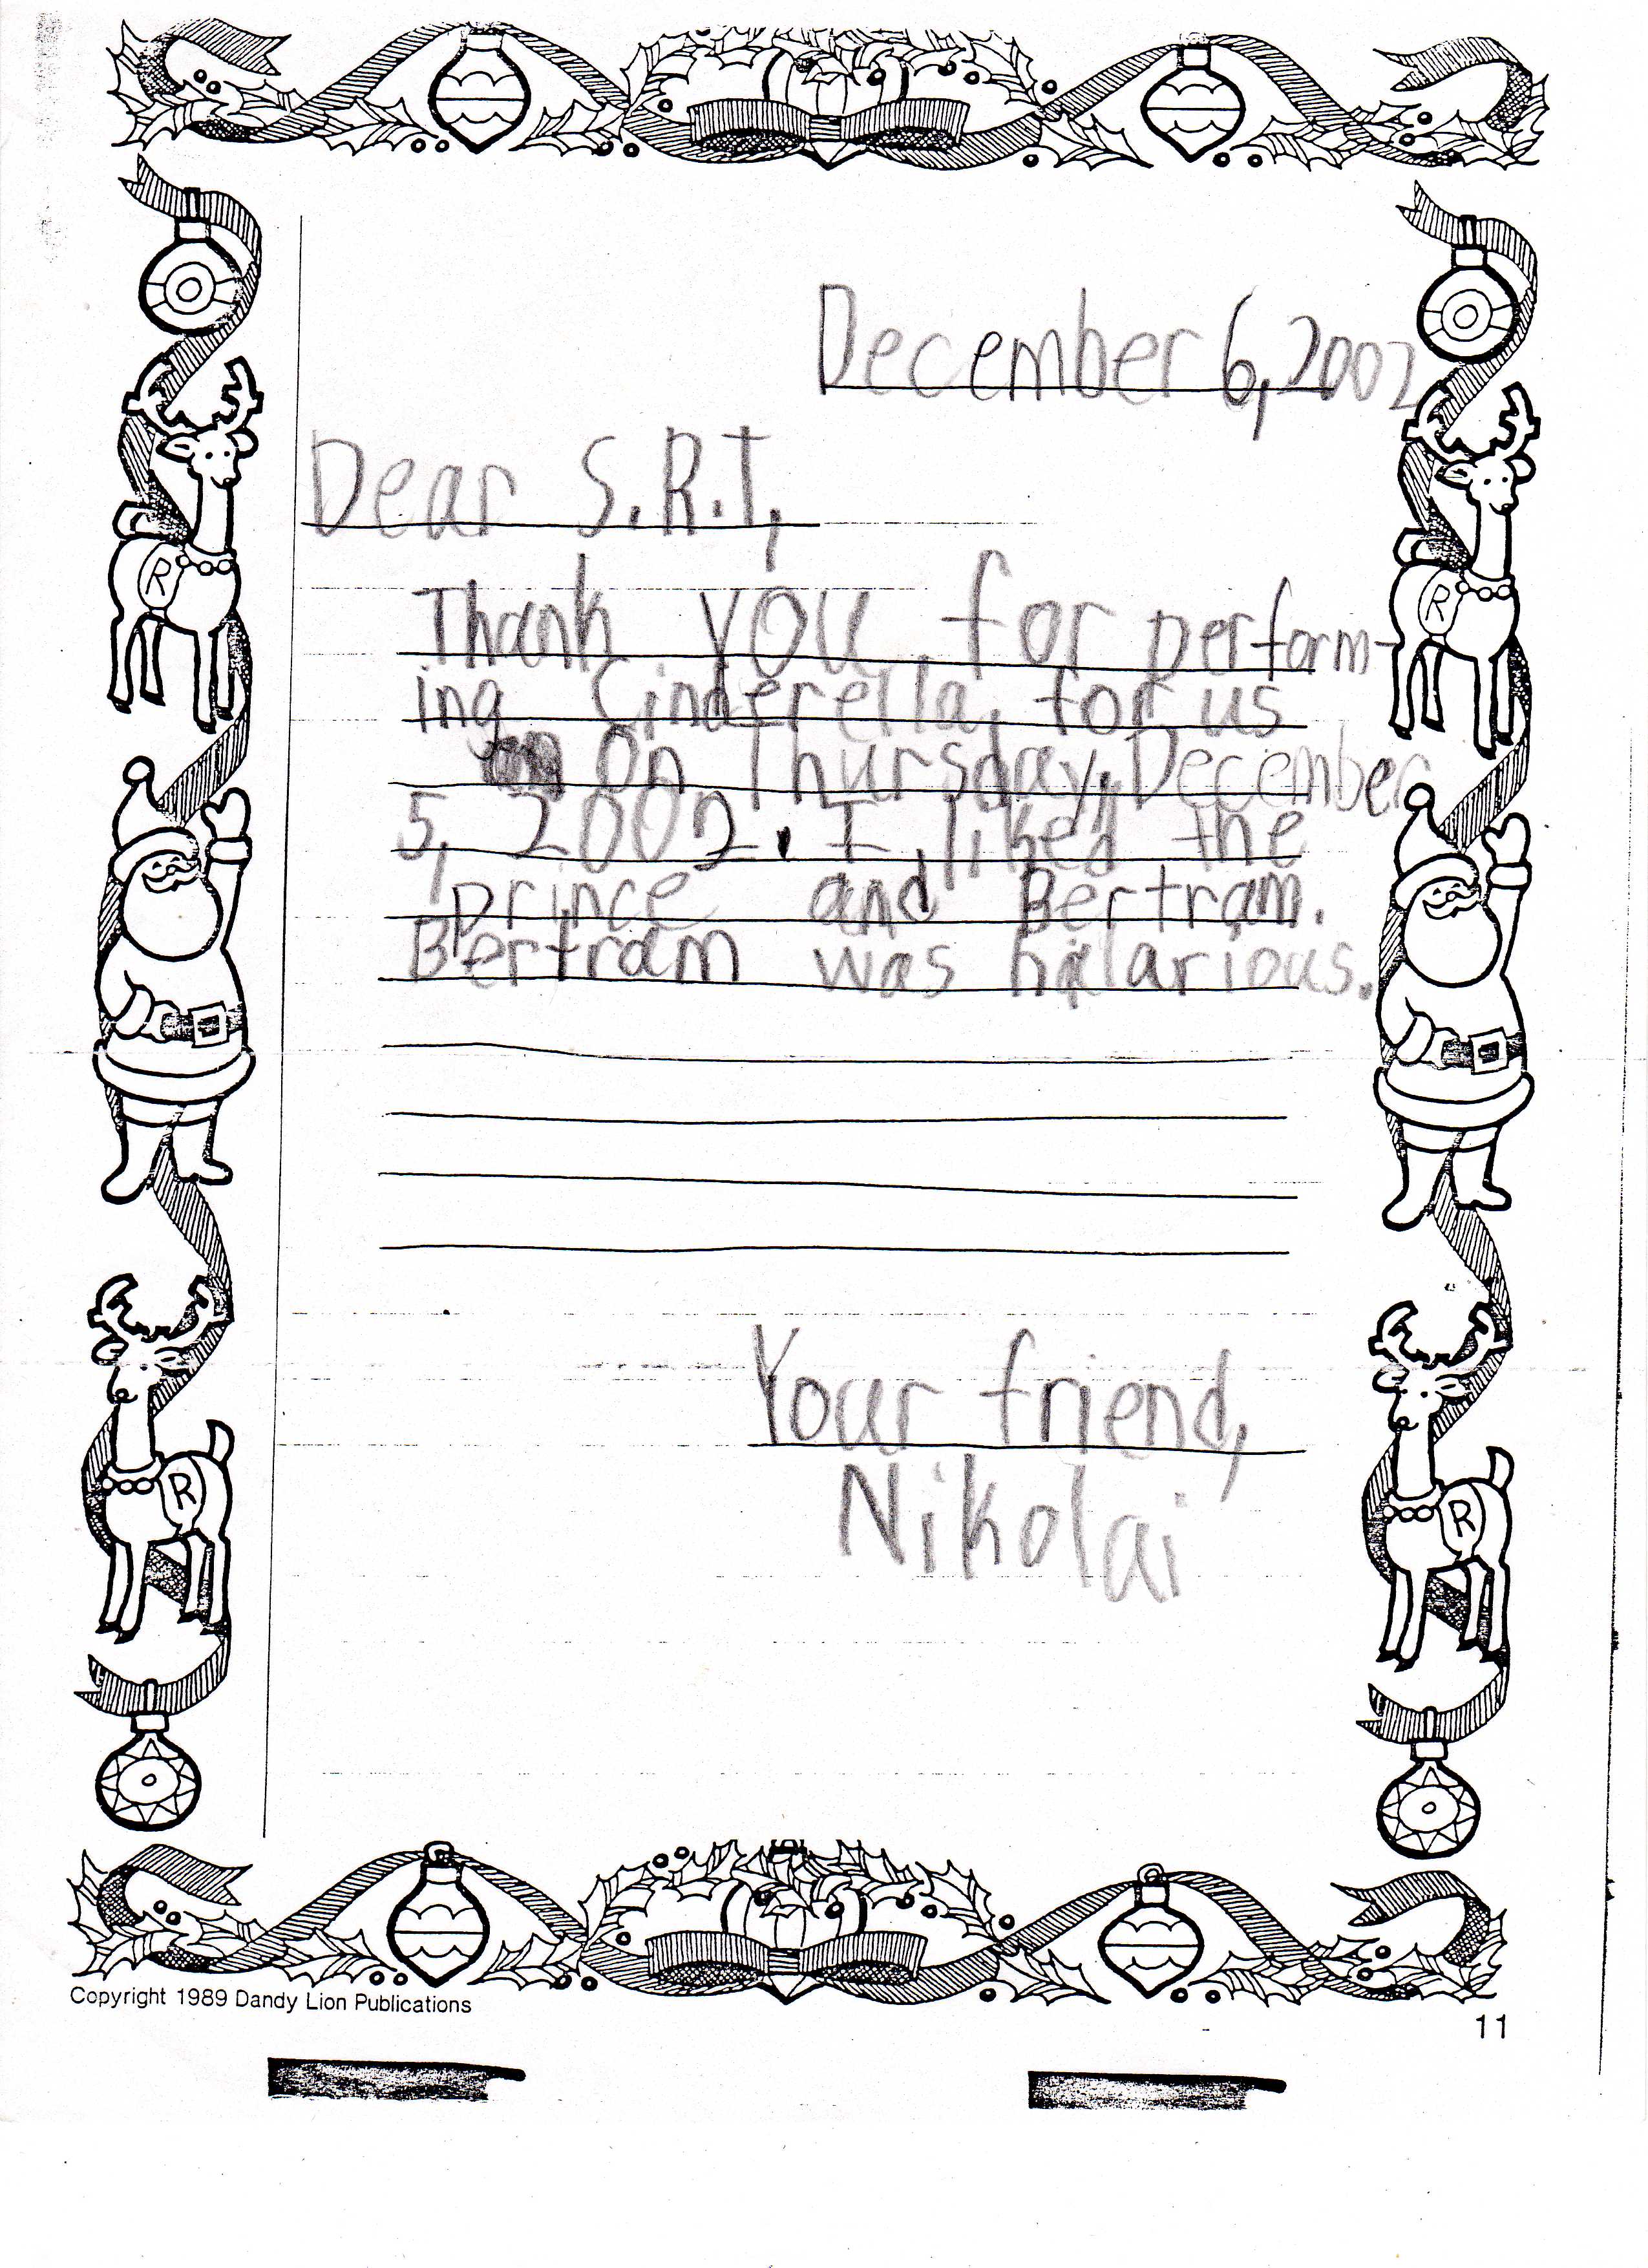 December 6, 2002
Dear S.R.T,
Thank you for perform-
ing Cinderella, for us
on Thursday, December
5, 2002. I liked the
prince and Bertram.
Bertram was halarious.
Your friend,
Nikolai
R
R
R
R
Copyright 1989 Dandy Lion Publications
11